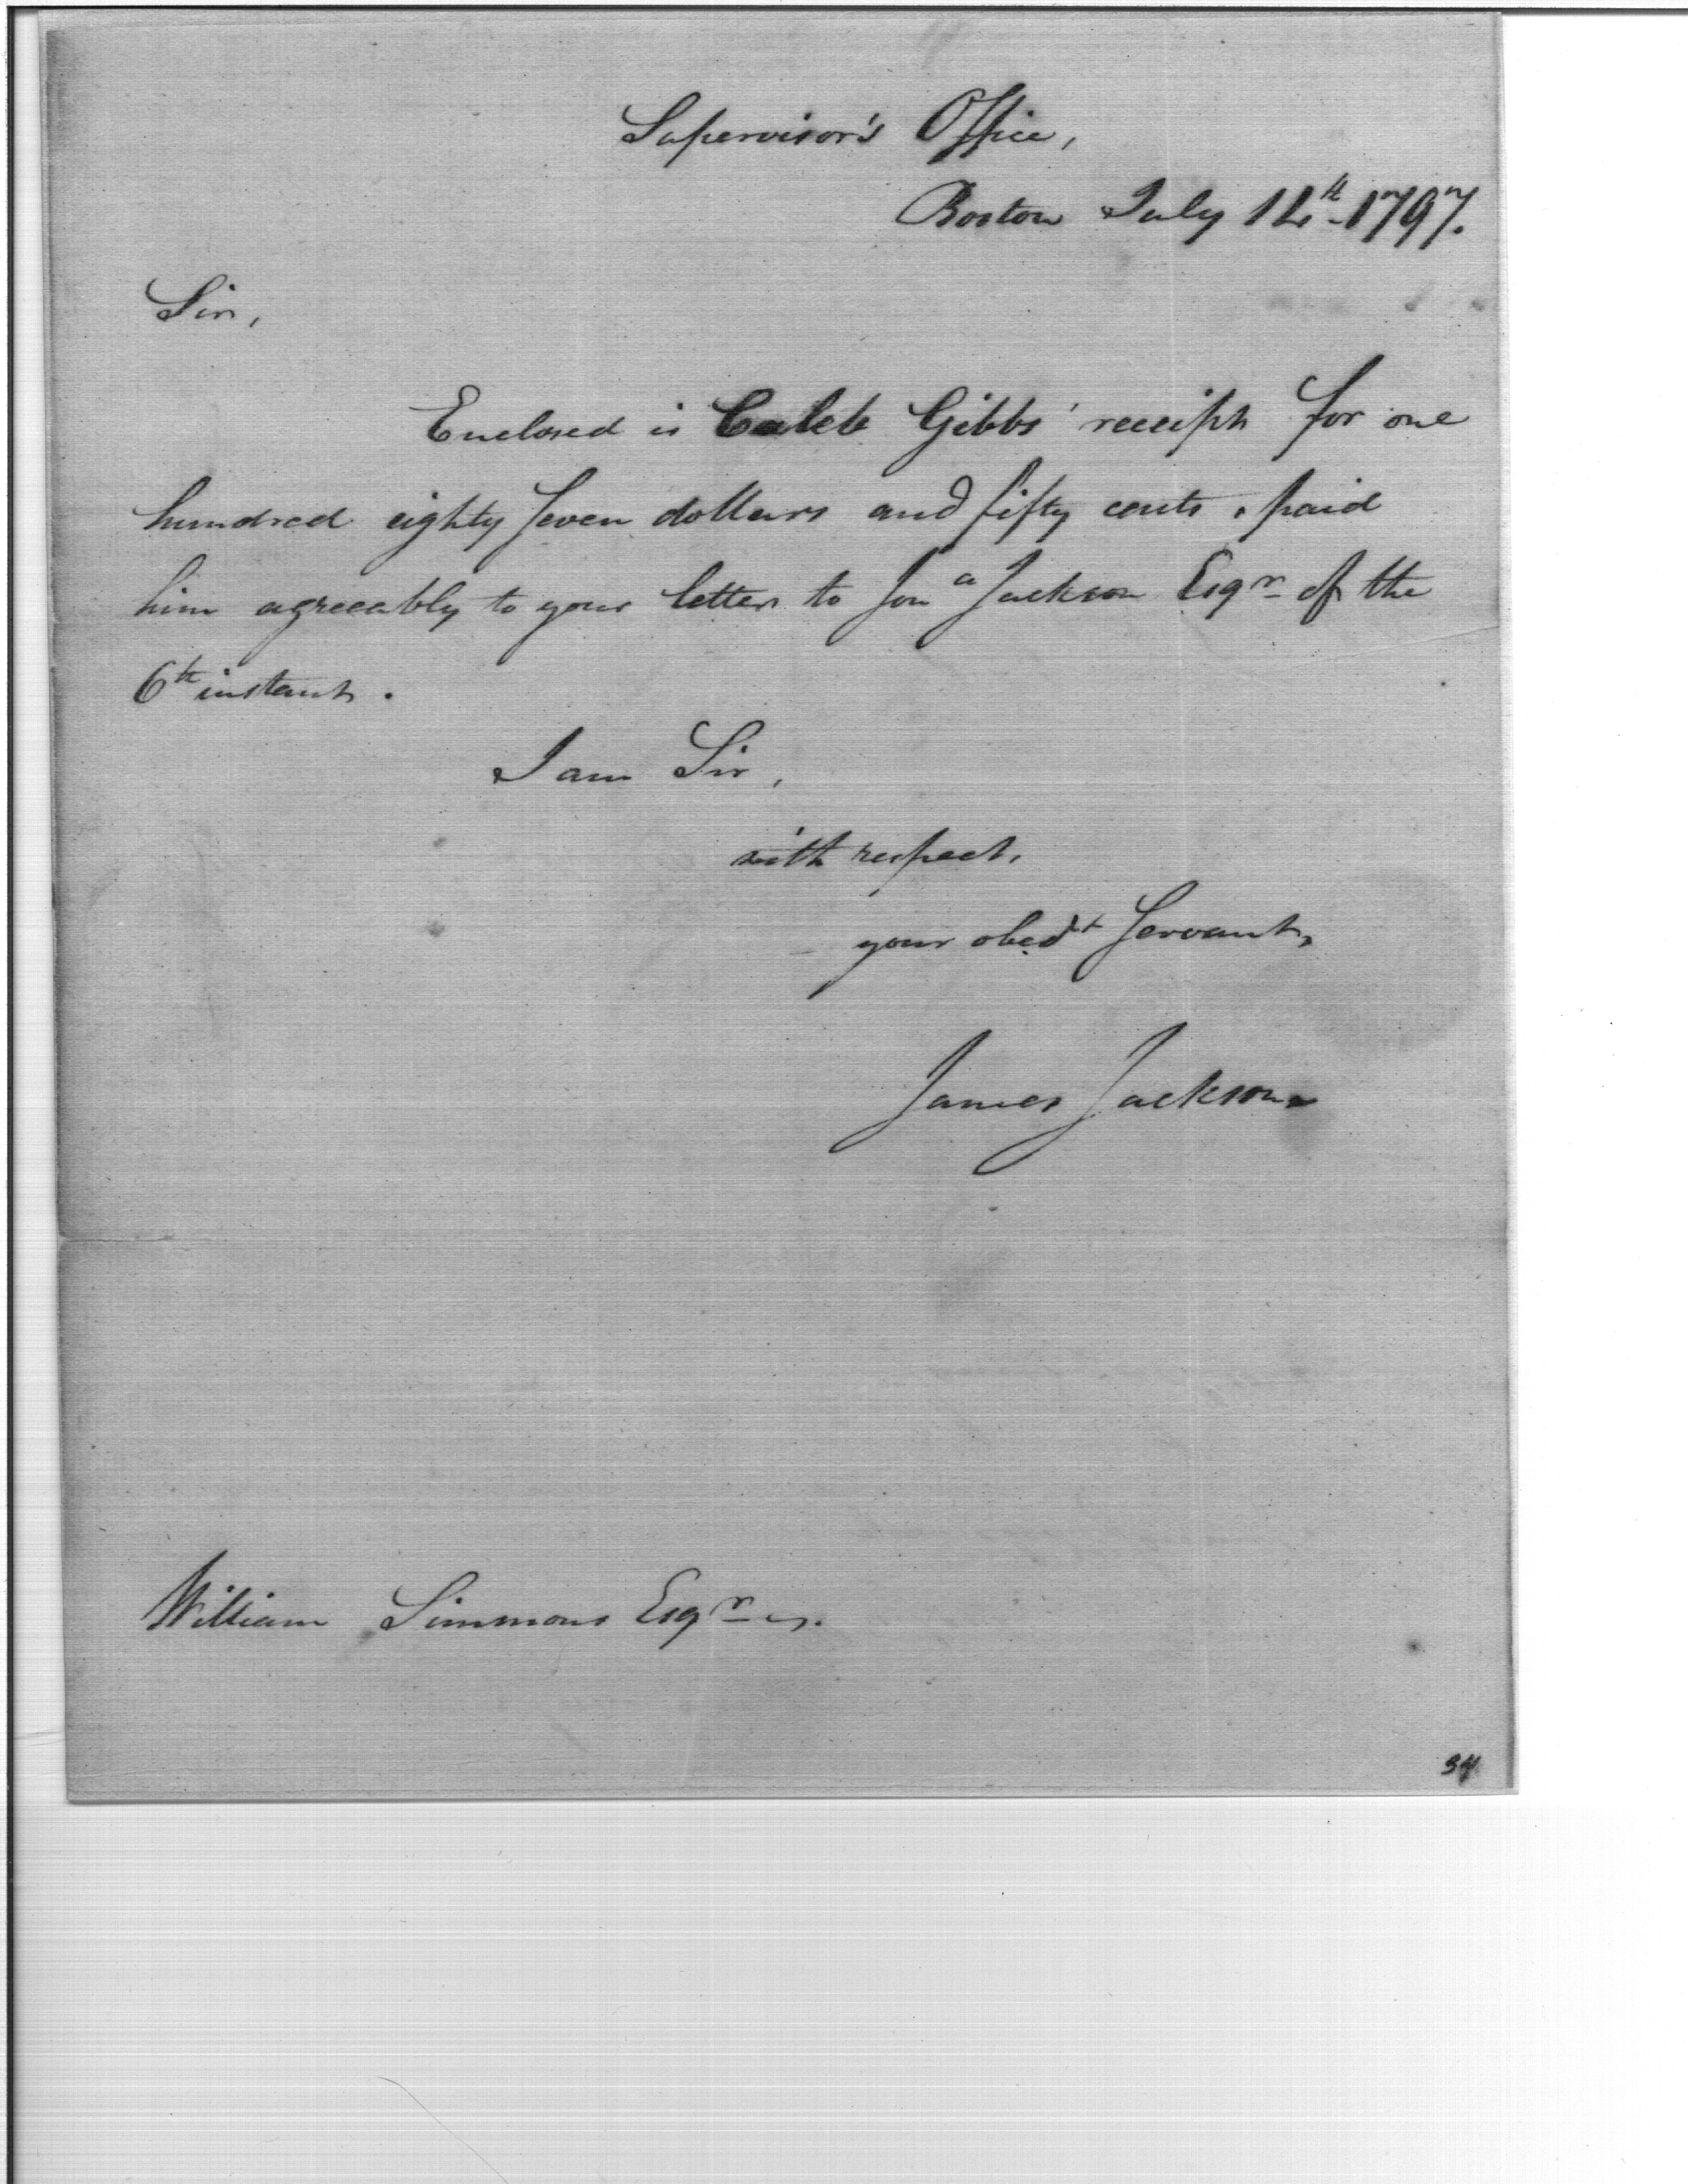 Supervisor's Office,
Boston July 12th 1797.
Sir,
Enclosed is Caleb Gibbs' receipt for one
hundred eighty seven dollars and fifty cents, paid
him agreeably to your letter to Jona Jackson Esqr of the
6th instant.
I am Sir,
with respect,
your obedt Servant,
James Jackson
William Simmons Esqr
34